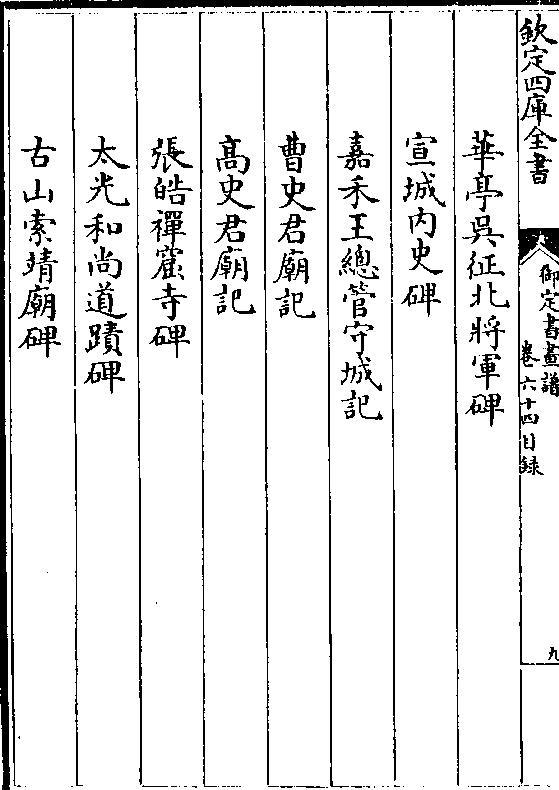 欽定四庫全書
御定書畫譜
卷六十四目録
九
華亭吳征北將軍碑
宣城内史碑
嘉禾王總管守城記
曹史君廟記
高史君廟記
張皓禪窟寺碑
太光和尚道蹟碑
古山索靖廟碑